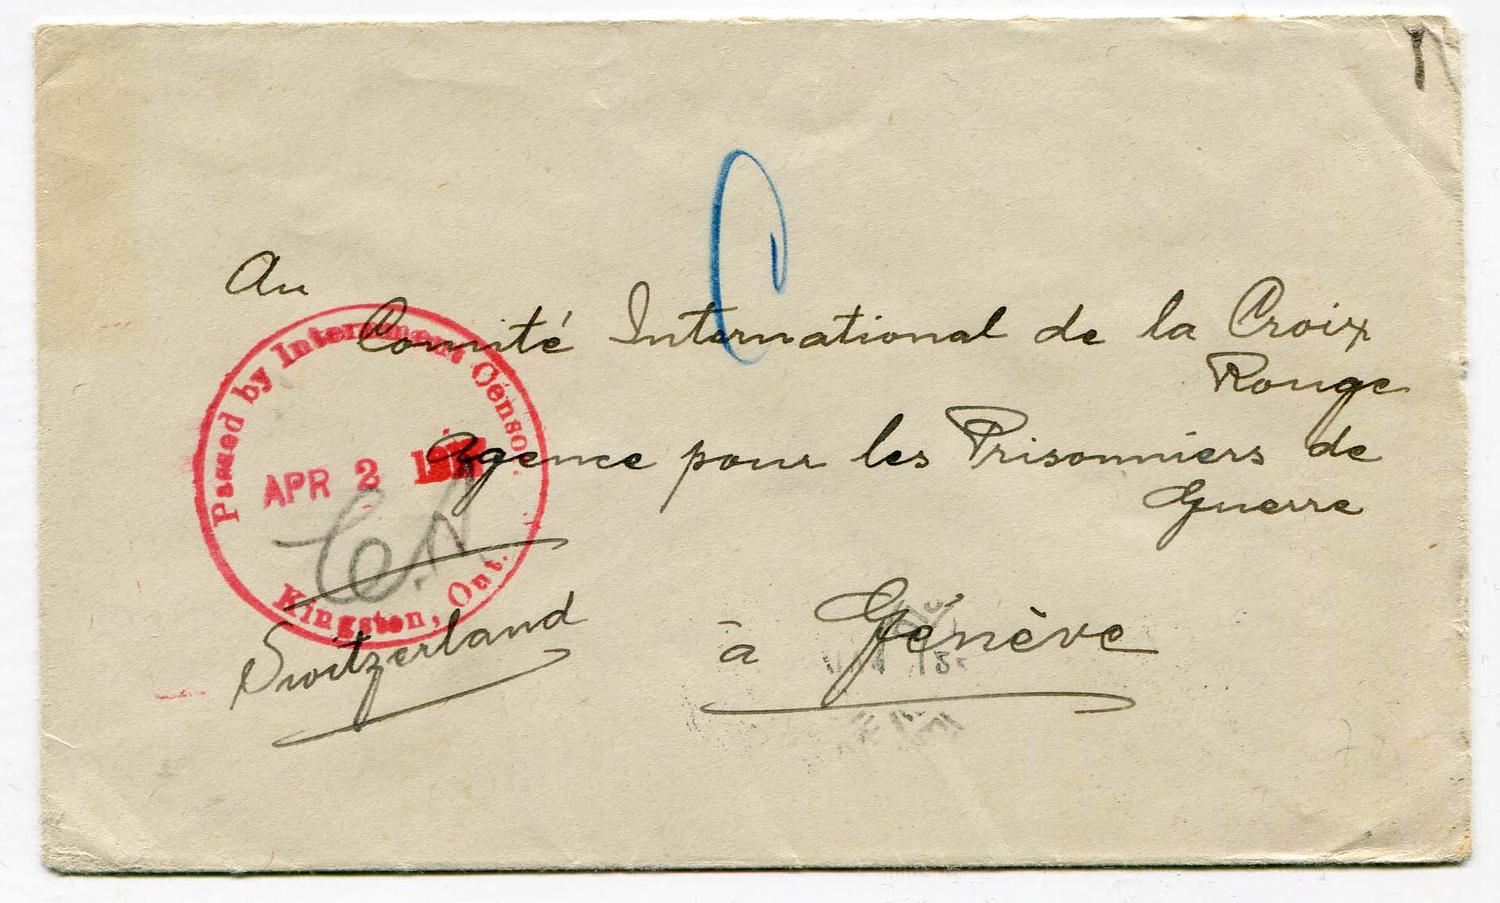 Au
Comité International de la Croix
Rouge
Agence pour les Prisonniers de
Guerre
à Génève
Switzerland
Passed by Internment Censor.
APR 2
Kingston, Ont.
C